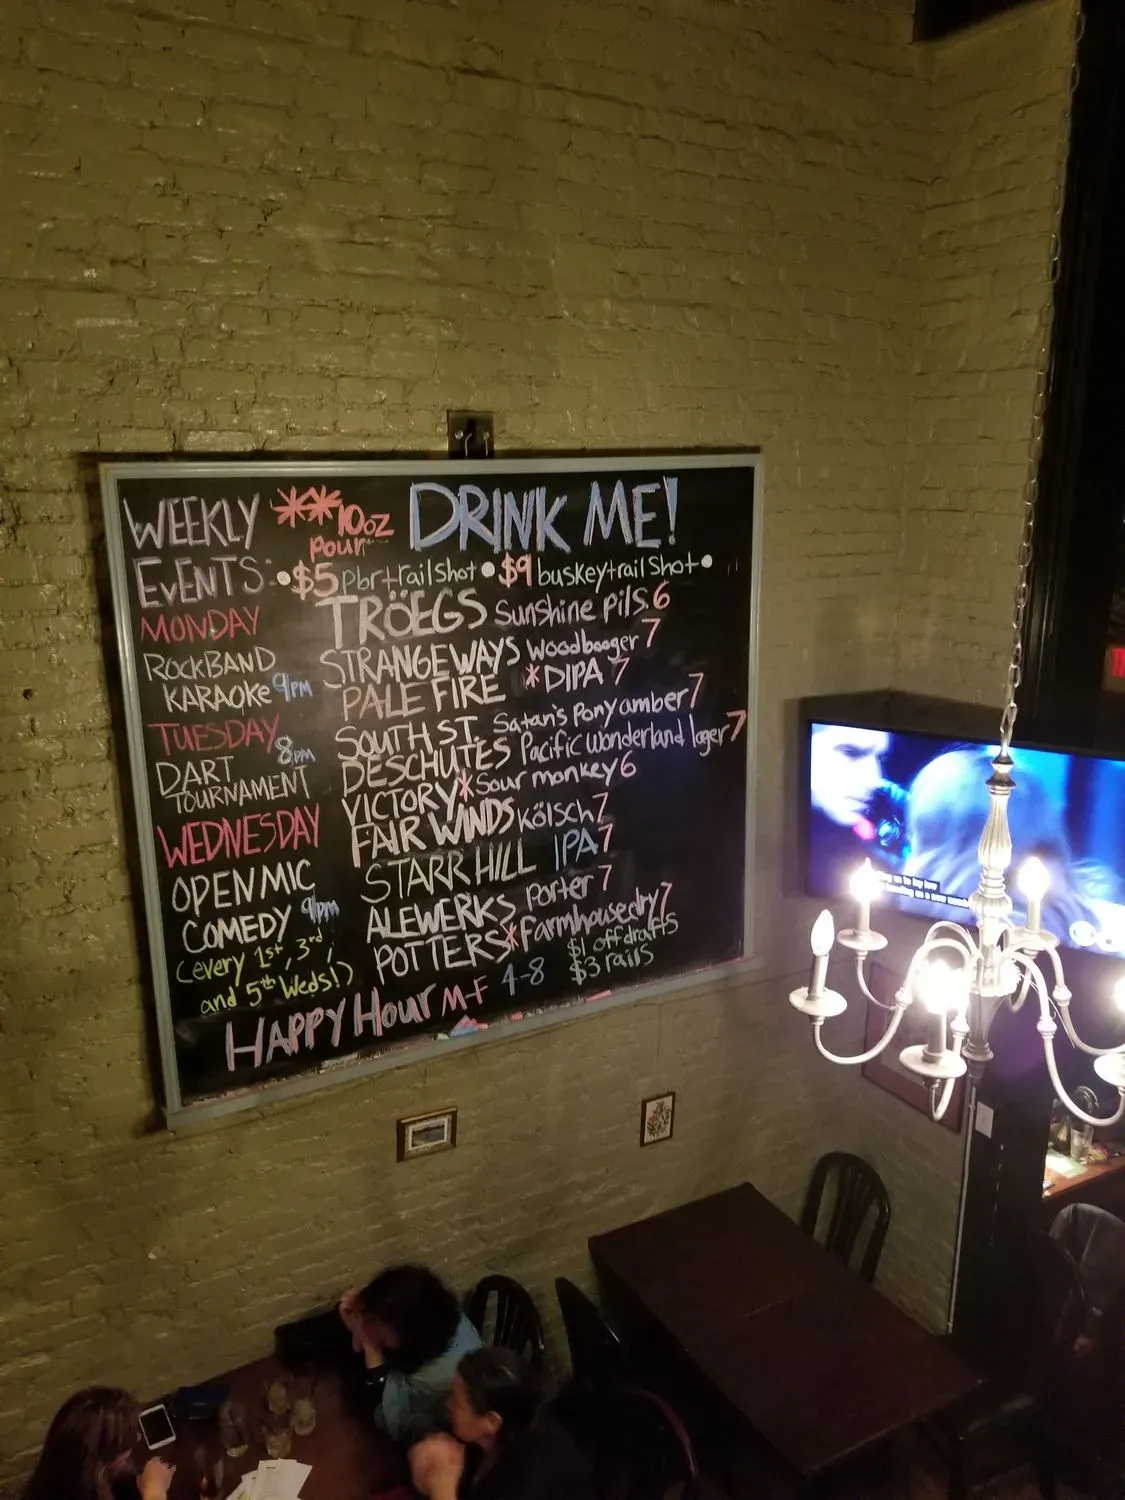 WEEKLY
EVENTS:
MONDAY
ROCKBAND
KARAOKE 9PM
TUESDAY
8PM
DART
TOURNAMENT
WEDNESDAY
OPEN MIC
COMEDY 9pm
(every 1st, 3rd,
and 5th Weds!)
**10oz
pour
DRINK ME!
•$5 pbr+rail shot •$9 buskey+rail shot•
TRÖEGS Sunshine pils. 6
STRANGEWAYS Woodbooger 7
PALE FIRE *DIPA 7
SOUTH ST. Satan's Pony amber 7
DESCHUTES Pacific Wonderland lager 7
VICTORY* Sour monkey 6
FAIR WINDS kölsch 7
STARR HILL IPA 7
ALEWERKS porter 7
POTTERS* Farmhouse dry 7
HAPPY HOUR M-F 4-8
$1 off drafts
$3 rails